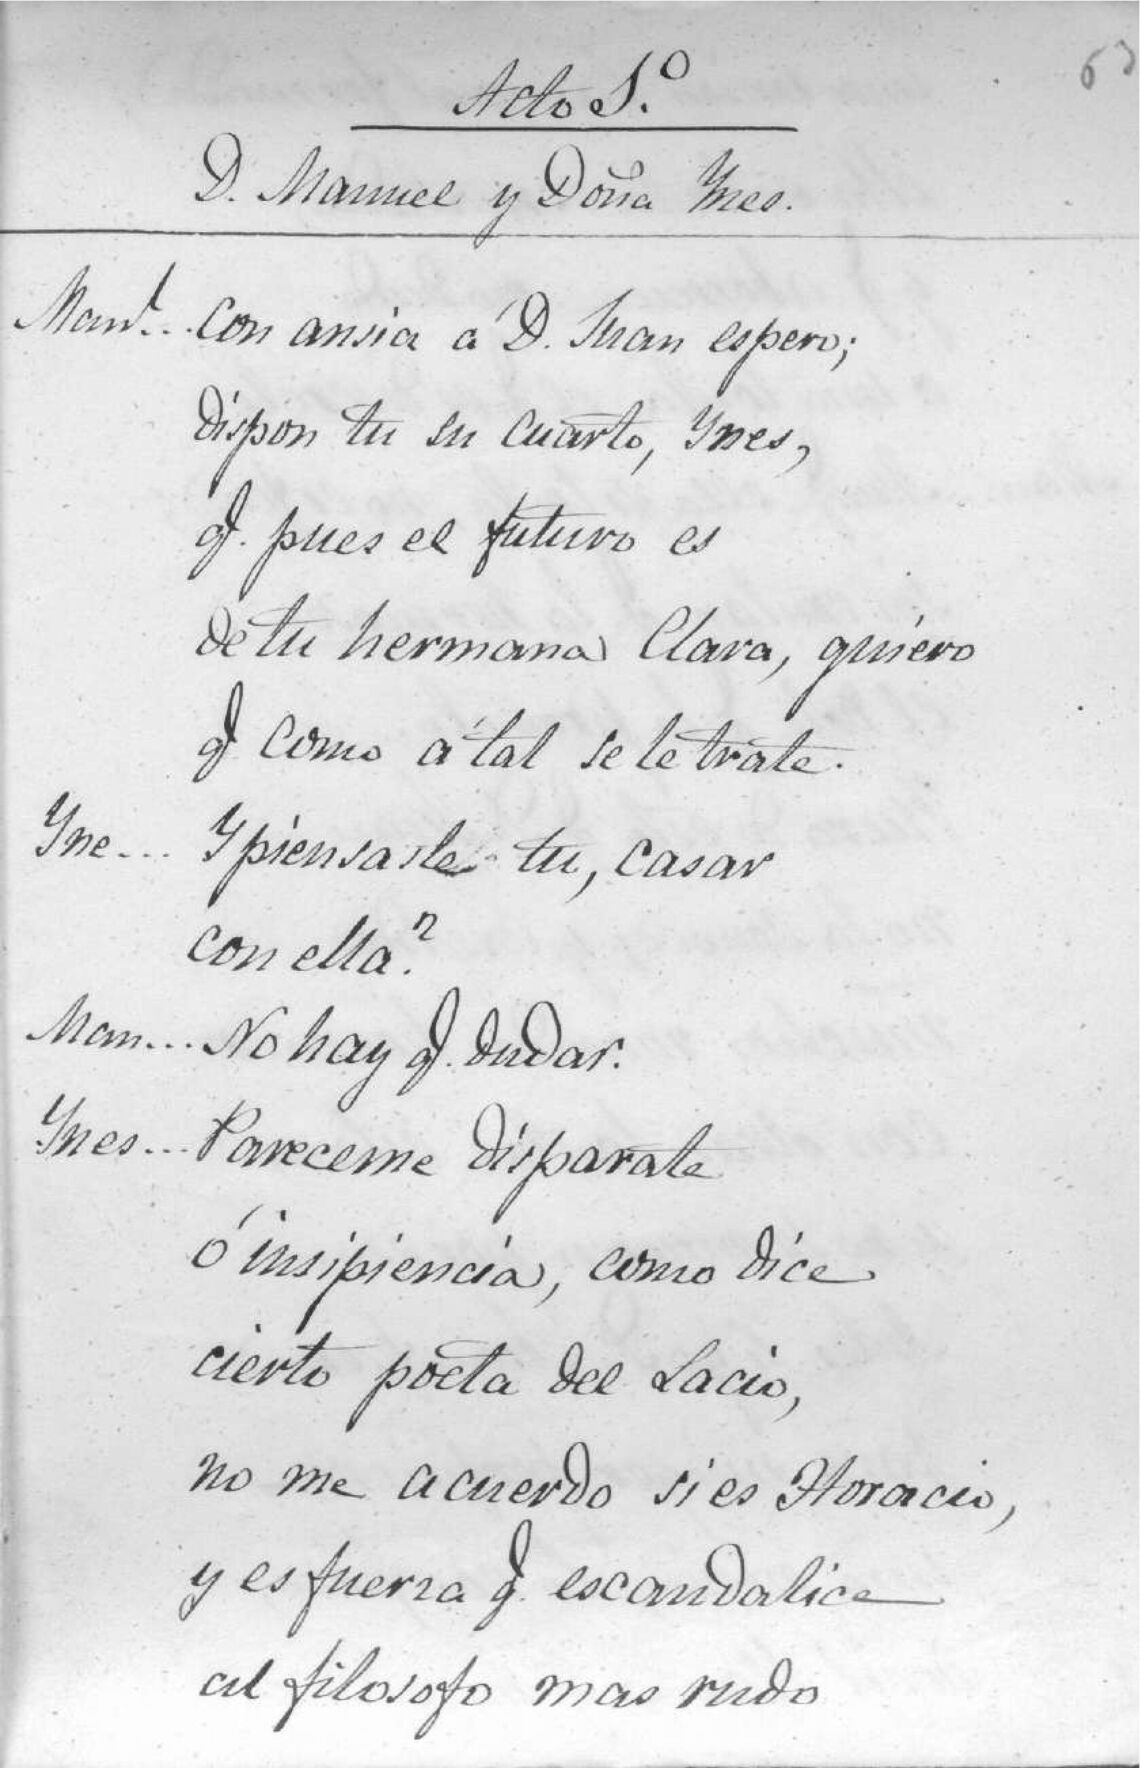 63
Acto 1.º
D. Manuel y Doña Ynes.
Man.l.. Con ansia á D. Juan espero;
dispon tu su cuarto, Ynes,
q. pues el futuro es
de tu hermana Clara, quiero
q como á tal se le trate.
Yne... Y piensasle tu, casar
con ella?
Man... No hay q. dudar.
Ynes... Pareceme disparate
ó insipiencia, como dice
cierto poeta del Lacio,
no me acuerdo si es Horacio,
y es fuerza q. escandalice
al filosofo mas rudo